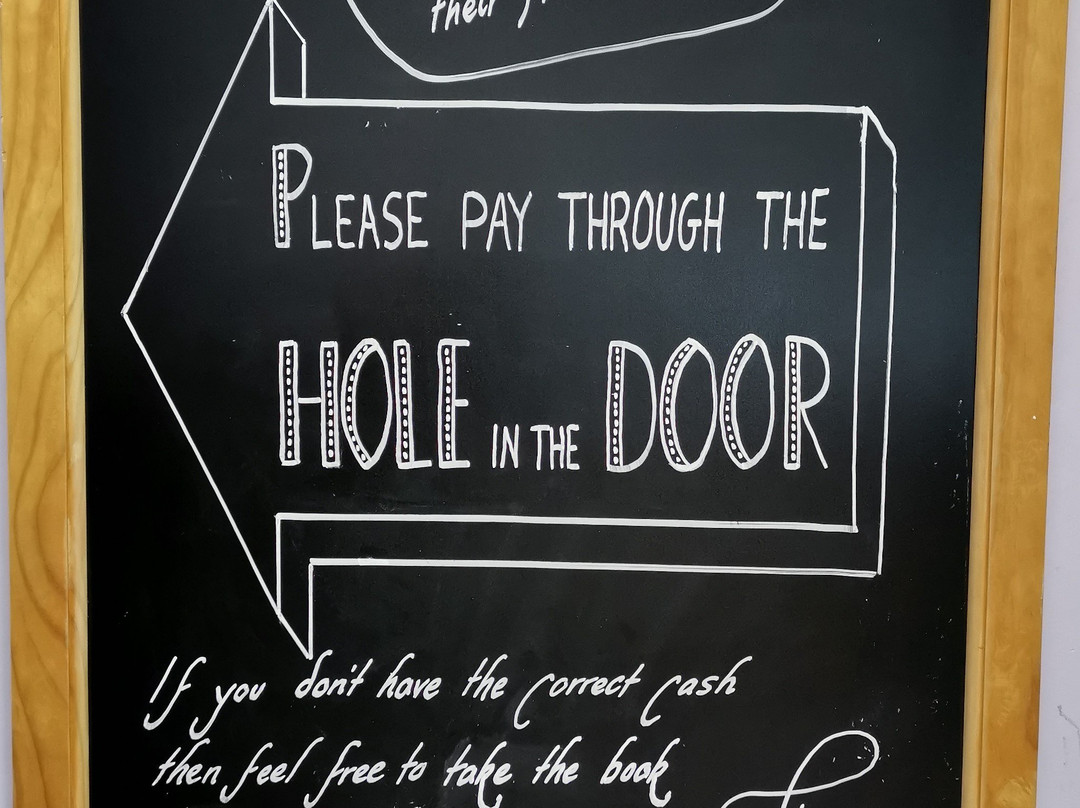 their
PLEASE PAY THROUGH THE
HOLE IN THE DOOR
If you don't have the correct cash
then feel free to take the book